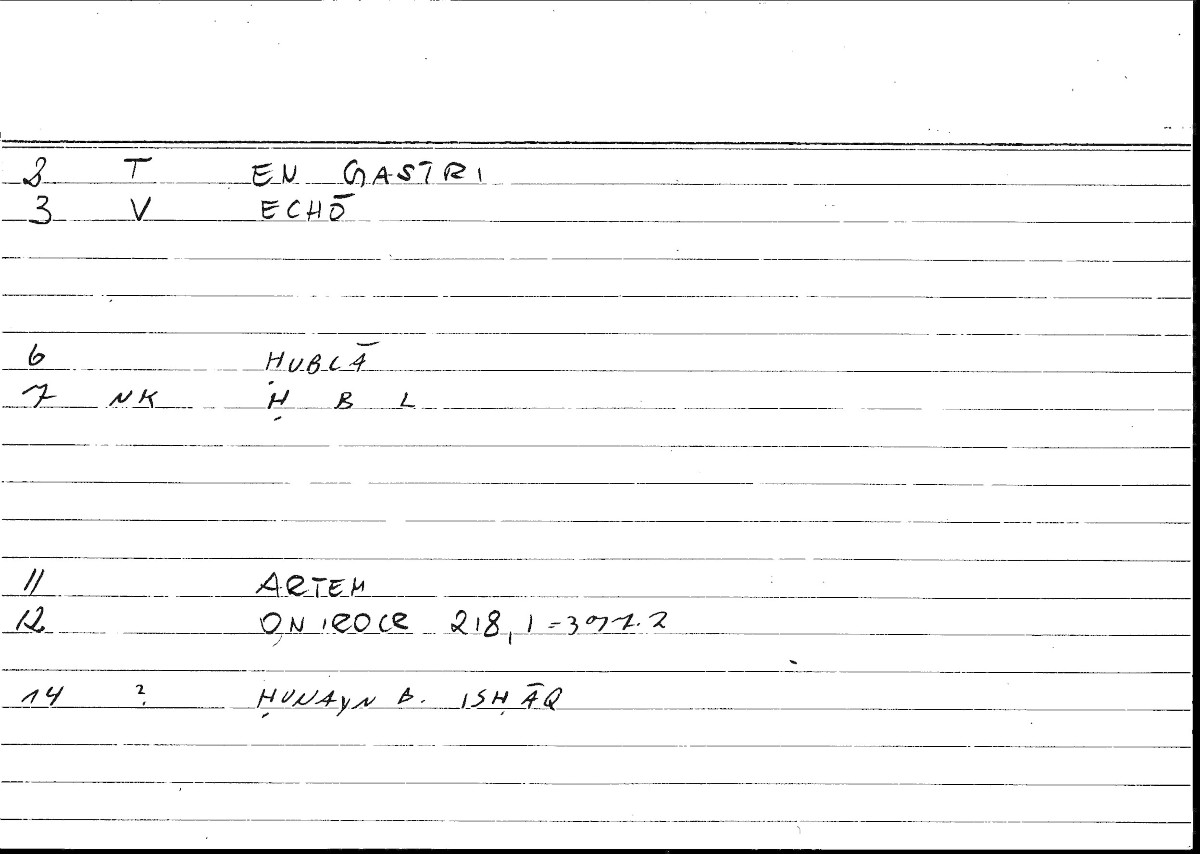 2 T EN GASTRI
3 V ECHŌ
6 ḤUBLĀ
7 NK Ḥ B L
11 ARTEM
12 ONIROCR 218,1 =
14 ? ḤUNAYN B. ISḤĀQ